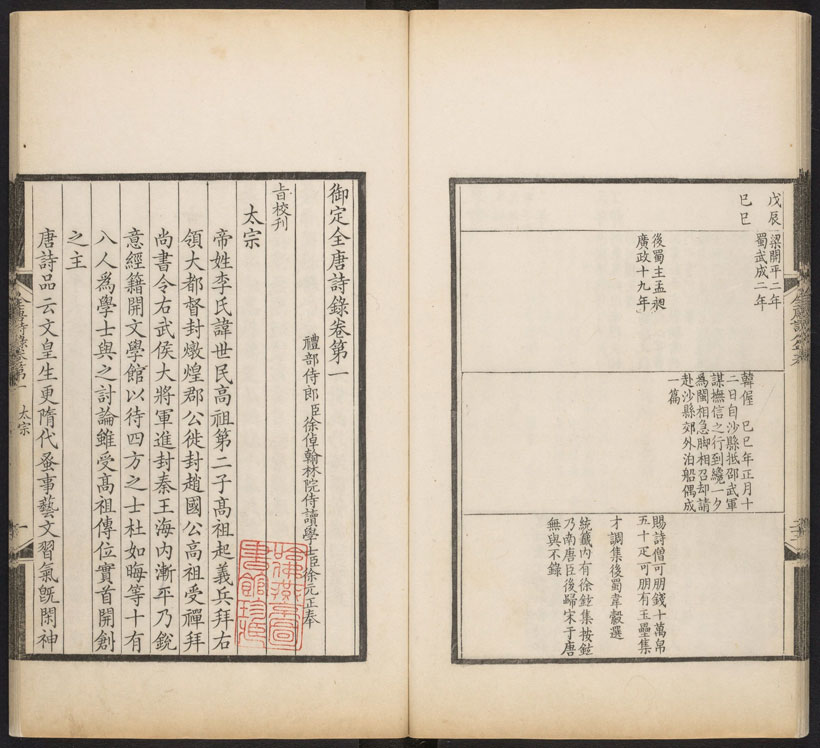 戊辰
己巳
梁開平二年
蜀武成二年
後蜀主孟昶
廣政十九年
韓偓　己巳年正月十
二日自沙縣抵邵武軍
謀撫信之行到纔一夕
為閩相急脚相召却請
赴沙縣郊外泊船偶成
一篇
賜詩僧可朋錢十萬帛
五十疋可朋有玉壘集
才調集後蜀韋縠選
統籤内有徐鉉集按鉉
乃南唐臣後歸宋于唐
無與不錄
御定全唐詩錄卷第一
禮部侍郎臣徐倬翰林院侍讀學士臣徐元正奉
旨校刊
太宗
帝姓李氏諱世民高祖第二子高祖起義兵拜右
領大都督封燉煌郡公徙封趙國公高祖受禪拜
尚書令右武侯大將軍進封秦王海内漸平乃銳
意經籍開文學館以待四方之士杜如晦等十有
八人爲學士與之討論雖受高祖傳位實首開創
之主
唐詩品云文皇生更隋代蚤事藝文習氣既閑神
全唐詩錄卷第一　太宗　一
哈佛燕京圖
書館珍藏